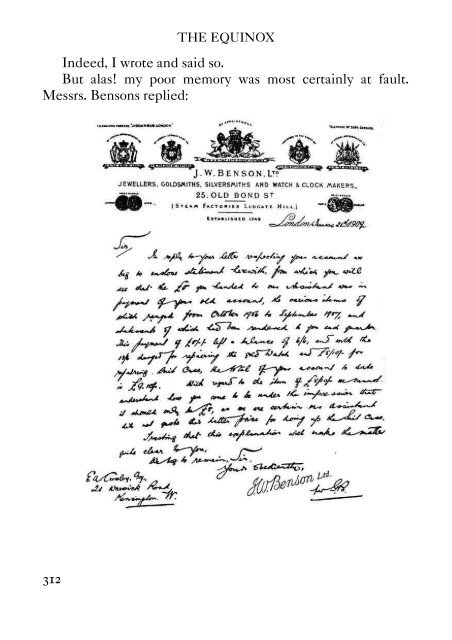 THE EQUINOX
Indeed, I wrote and said so.
But alas! my poor memory was most certainly at fault.
Messrs. Bensons replied:
BY APPOINTMENT
J. W. BENSON, LTD
JEWELLERS, GOLDSMITHS, SILVERSMITHS AND WATCH & CLOCK MAKERS,
25, OLD BOND ST
(STEAM FACTORIES LUDGATE HILL.)
ESTABLISHED 1749
London, 1909
Sir,
In reply to your letter respecting your account we
beg to enclose statement herewith, from which you will
see that the £5 you handed to our Assistant was in
payment of your old account, the various items of
which ranged from October 1906 to September 1907, and
statements of which had been rendered to you each quarter.
This payment of left a balance of 6/6, and with the
charged for repairing the old Watch and for
repairing Suit Case, the total of your account to date
is With regard to the item of we cannot
understand how you came to be under the impression that
it should only be as we are certain our assistant
did not quote this latter price for doing up the Suit Case.
Trusting that this explanation will make the matter
quite clear to you,
We beg to remain, Sir,
Yours obediently,
J.W. Benson Ltd.
E. A. Crowley, Esq.
21 Warwick Road,
Kensington. W.
312